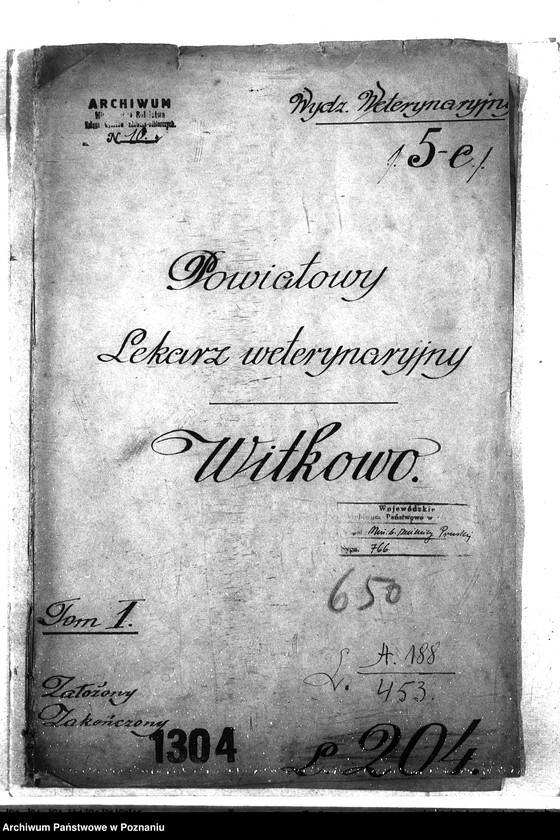 ARCHIWUM
N 10.
Wydz. Weterynaryjny
/. 5-c. /.
Powiatowy
Lekarz weterynaryjny
Witkowo.
Wojewódzkie
Archiwum Państwowe w
Min. b. dzielnicy Pruskiej
Sygn. 766
650
Tom I.
L. A. 188
453.
Założony
Zakończony
1304
L 204.
Archiwum Państwowe w Poznaniu